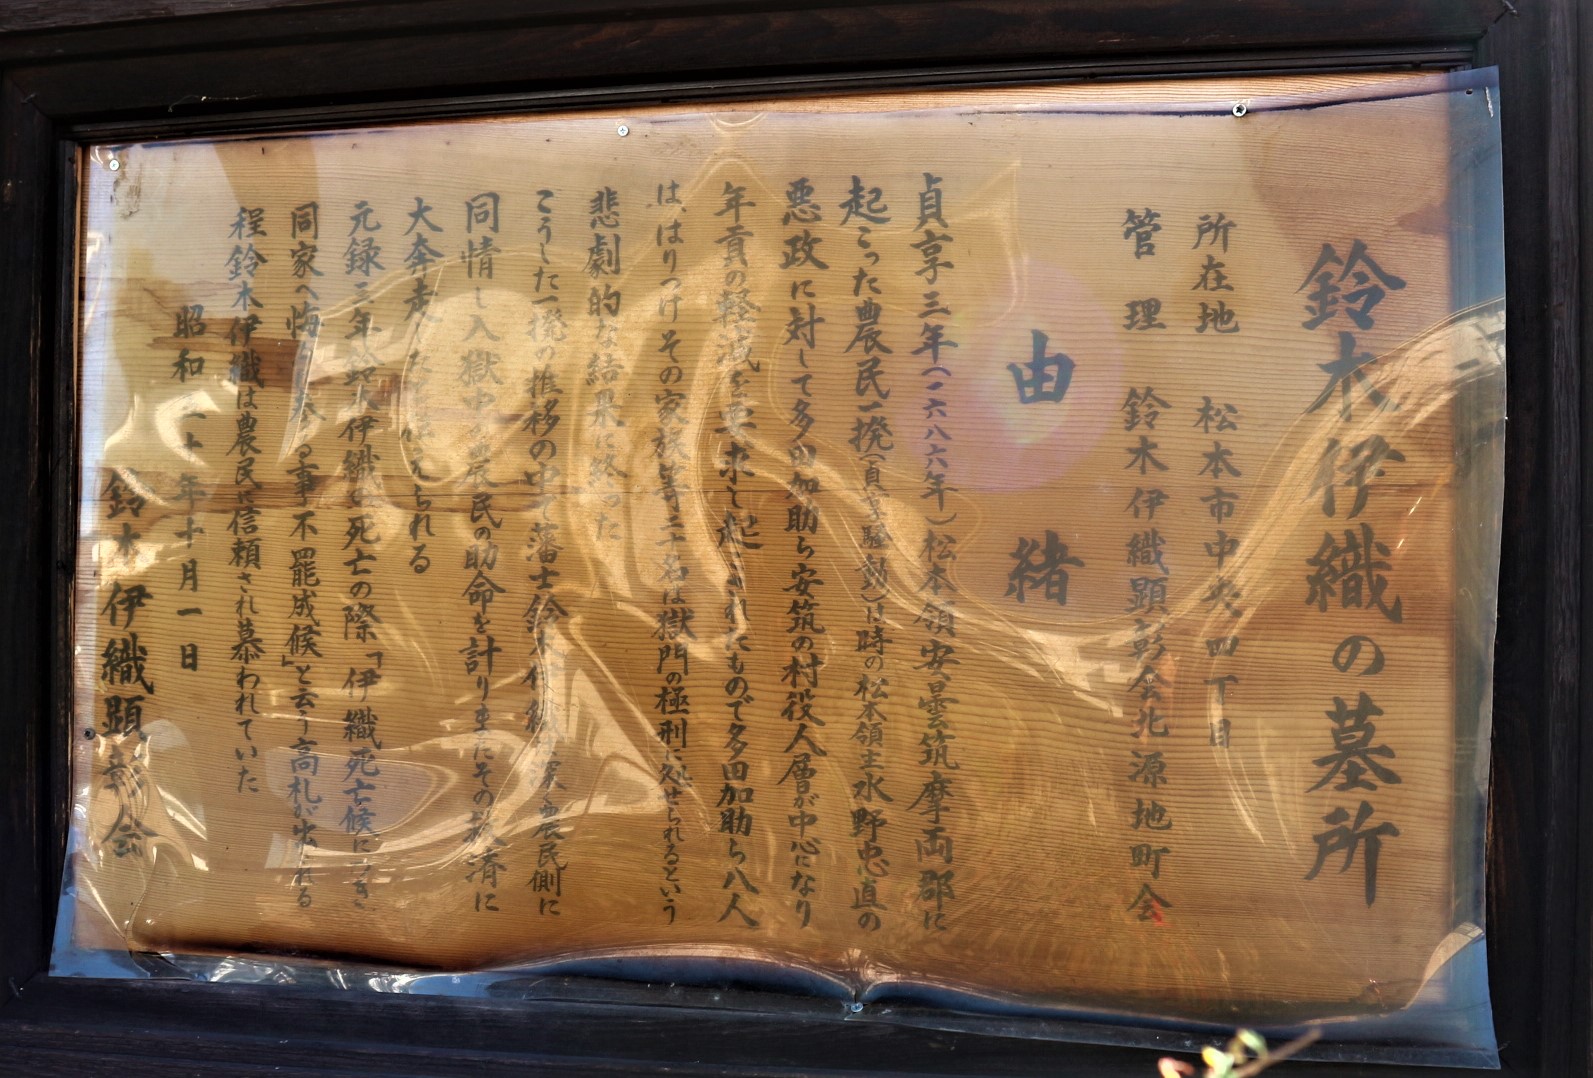 鈴木伊織の墓所
所在地 松本市中央四丁目
管理 鈴木伊織顕彰会北源地町会
由緒
貞享三年(一六八六年)松本領安曇筑摩両郡に
起こった農民一揆(貞享騒動)は時の松本領主水野忠直の
悪政に対して多田加助ら安筑の村役人層が中心になり
年貢の軽減を要求し起こされたもので多田加助ら八人
は、はりつけその家族等二十名は獄門の極刑に処せられるという
悲劇的な結果に終った
こうした一揆の推移の中で藩士鈴木伊織は深く農民側に
同情し入獄中の農民の助命を計りまたその救済に
大奔走したと伝えられる
元録三年鈴木伊織の死亡の際「伊織死亡候につき
同家へ悔参る事不罷成候」と云う高札が出される
程鈴木伊織は農民に信頼され慕われていた
昭和 十年十月一日
鈴木伊織顕彰会